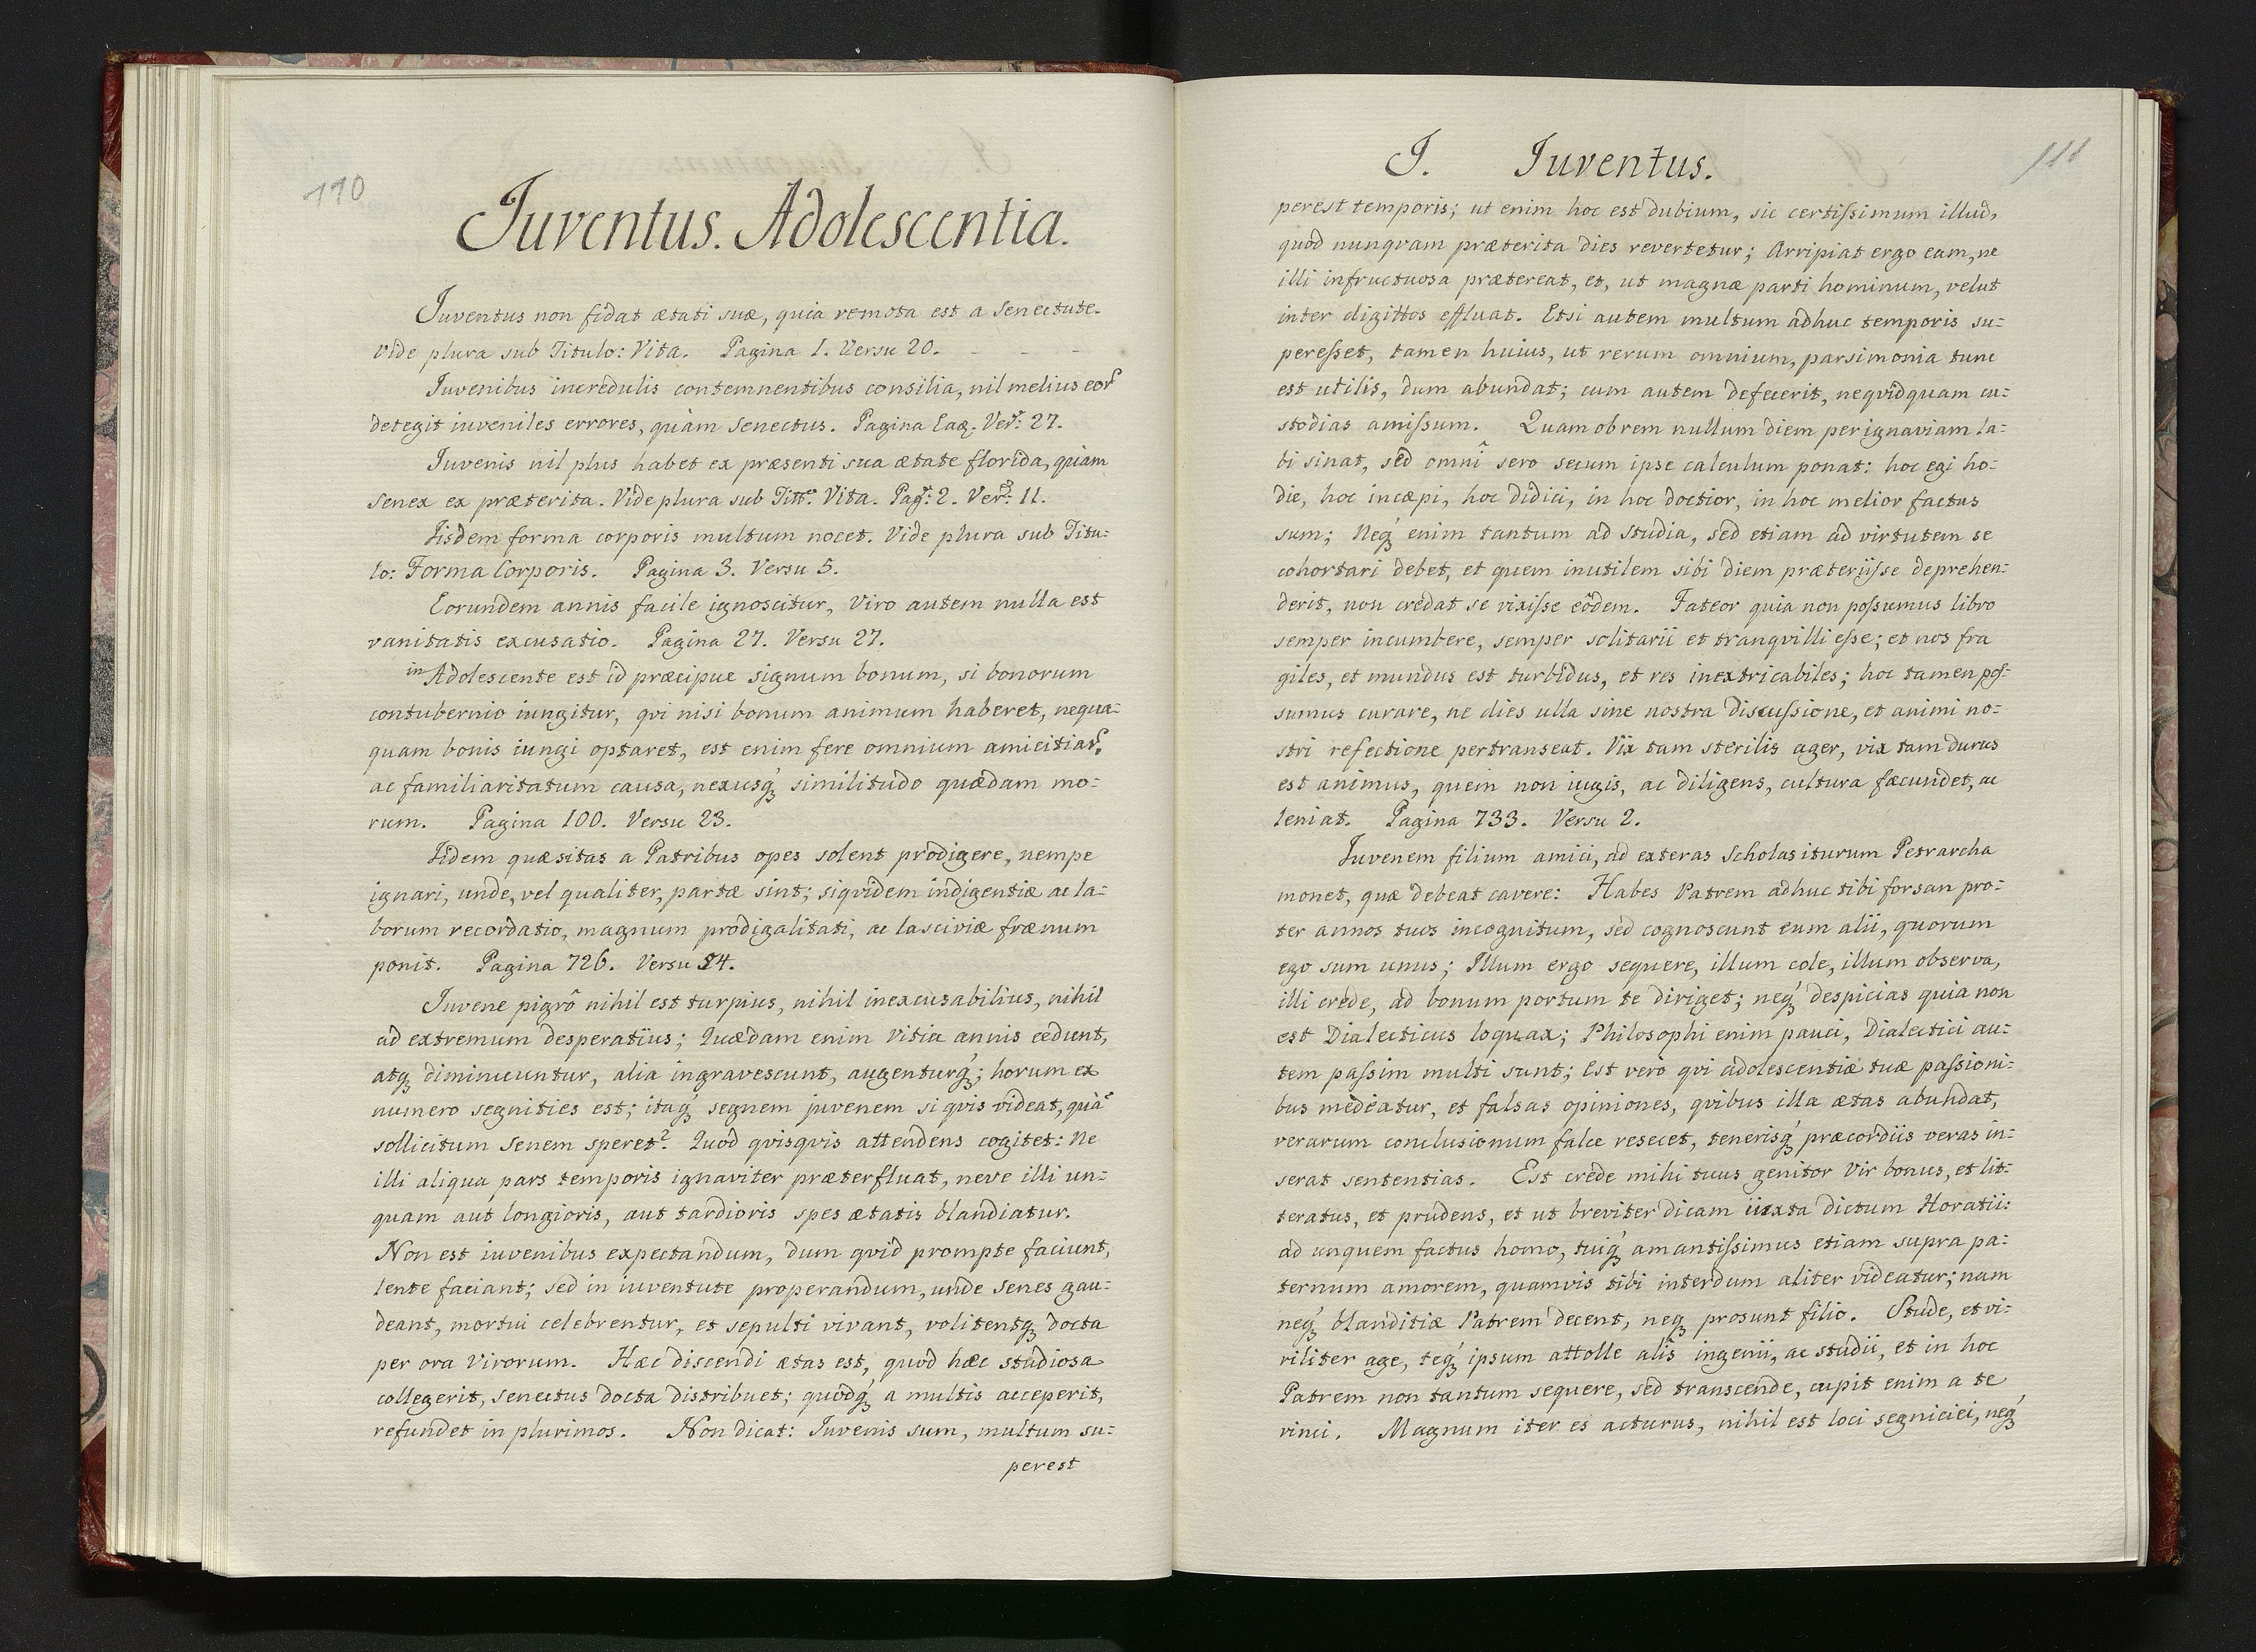 110
Juventus. Adolescentia.
Juventus non fidat ætati suæ, quia remota est a senectute.
vide plura sub Titulo: Vita. Pagina 1. Versu 20. - - -
Juvenibus incredulis contemnentibus consilia, nil melius eor̃
detegit iuveniles errores, quàm senectus. Pagina Eaq. Ver: 27.
Juvenis nil plus habet ex præsenti sua ætate florida, quàm
senex ex præterita. Vide plura sub Titt: Vita. Pag: 2. Vers: 11.
Iisdem forma corporis multum nocet. Vide plura sub Titu:
lo: Forma Corporis. Pagina 3. Versu 5.
Eorundem annis facile ignoscitur, Viro autem nulla est
vanitatis excusatio. Pagina 27. Versu 27.
in Adolescente est id præcipue signum bonum, si bonorum
contubernio iungitur, qvi nisi bonum animum haberet, nequa:
quam bonis iungi optaret, est enim fere omnium amicitiar̃,
ac familiaritatum causa, nexusq́ȝ similitudo quædam mo:
rum. Pagina 100. Versu 23.
Iidem quæsitas a Patribus opes solent prodigere, nempe
ignari, unde, vel qualiter, partæ sint; siqvidem indigentiæ ac la:
borum recordatio, magnum prodigalitati, ac lasciviæ frænum
ponit. Pagina 726. Versu 24.
Juvene pigrô nihil est turpius, nihil inexcusabilius, nihil
ad extremum desperatius; Quædam enim Vitia annis cedunt,
atqȝ diminuuntur, alia ingravescunt, augenturq́ȝ; horum ex
numero segnities est; itaq́ȝ segnem juvenem si qvis videat, quã
sollicitum Senem speret? Quod qvisqvis attendens cogitet: Ne
illi aliqua pars temporis ignaviter præterfluat, neve illi un:
quam aut longioris, aut tardioris spes ætatis blandiatur.
Non est iuvenibus expectandum, dum qvid prompte faciunt,
lente faciant; sed in iuventute properandum, unde senes gau:
deant, mortui celebrentur, et sepulti vivant, volitentqȝ docta
per ora Virorum. Hæc discendi ætas est, quod hæc studiosa
collegerit, senectus docta distribuet; quodq́ȝ a multis acceperit,
refundet in plurimos. Non dicat: Juvenis sum, multum su:
perest
111
J. Juventus.
perest temporis; ut enim hoc est dubium, sic certissimum illud,
quod nunqvam præterita dies revertetur; Arripiat ergo eam, ne
illi infructuosa prætereat, et, ut magnæ parti hominum, velut
inter digittos effluat. Etsi autem multum adhuc temporis su:
peresset, tamen huius, ut rerum omnium, parsimonia tunc
est utilis, dum abundat; cum autem defecerit, neqvidquam cu:
stodias amissum. Quamobrem nullum diem per ignaviam la:
bi sinat, sed omni sero secum ipse calculum ponat: hoc egi ho:
die, hoc incæpi, hoc didici, in hoc doctior, in hoc melior factus
sum; Neq́ȝ enim tantum ad studia, sed etiam ad virtutem se
cohortari debet, et quem inutilem sibi diem præteriisse deprehen:
derit, non credat se vixisse eôdem. Fateor quia non possumus libro
semper incumbere, semper solitarii et tranqvilli esse; et nos fra
giles, et mundus est turbidus, et res inextricabiles; hoc tamen pos:
sumus curare, ne dies ulla sine nostra discussione, et animi no:
stri refectione pertranseat. Vix tam sterilis ager, vix tam durus
est animus, quem non iugis, ac diligens, cultura fæcundet, ac
leniat. Pagina 733. Versu 2.
Juvenem filium amici, ad exteras scholas iturum Petrarcha
monet, quæ debeat cavere: Habes Patrem adhuc tibi forsan pro:
ter annos tuos incognitum, sed cognoscunt eum alii, quorum
ego sum unus; Illum ergo sequere, illum cole, illum observa,
illi crede, ad bonum portum te diriget; neq́ȝ despicias quia non
est Dialecticus loquax; Philosophi enim pauci, Dialectici au:
tem passim multi sunt; Est vero qvi adolescentiæ tuæ passioni:
bus medeatur, et falsas opiniones, qvibus illa ætas abundat,
verarum conclusionum falce resecet, tenerisq́ȝ præcordiis veras in:
serat sententias. Est crede mihi tuus genitor Vir bonus, et lit:
teratus, et prudens, et ut breviter dicam iuxta dictum Horatii:
ad unquem factus homo, tuiq́ȝ amantissimus etiam supra pa:
ternum amorem, quamvis tibi interdum aliter videatur; nam
neq́ȝ blanditiæ Patrem decent, neqȝ prosunt filio. Stude, et vi:
riliter age, teq́ȝ ipsum attolle alis ingenii, ac studii, et in hoc
Patrem non tantum sequere, sed transcende, cupit enim a te
vinci. Magnum iter es acturus, nihil est loci segniciei, neq́ȝ